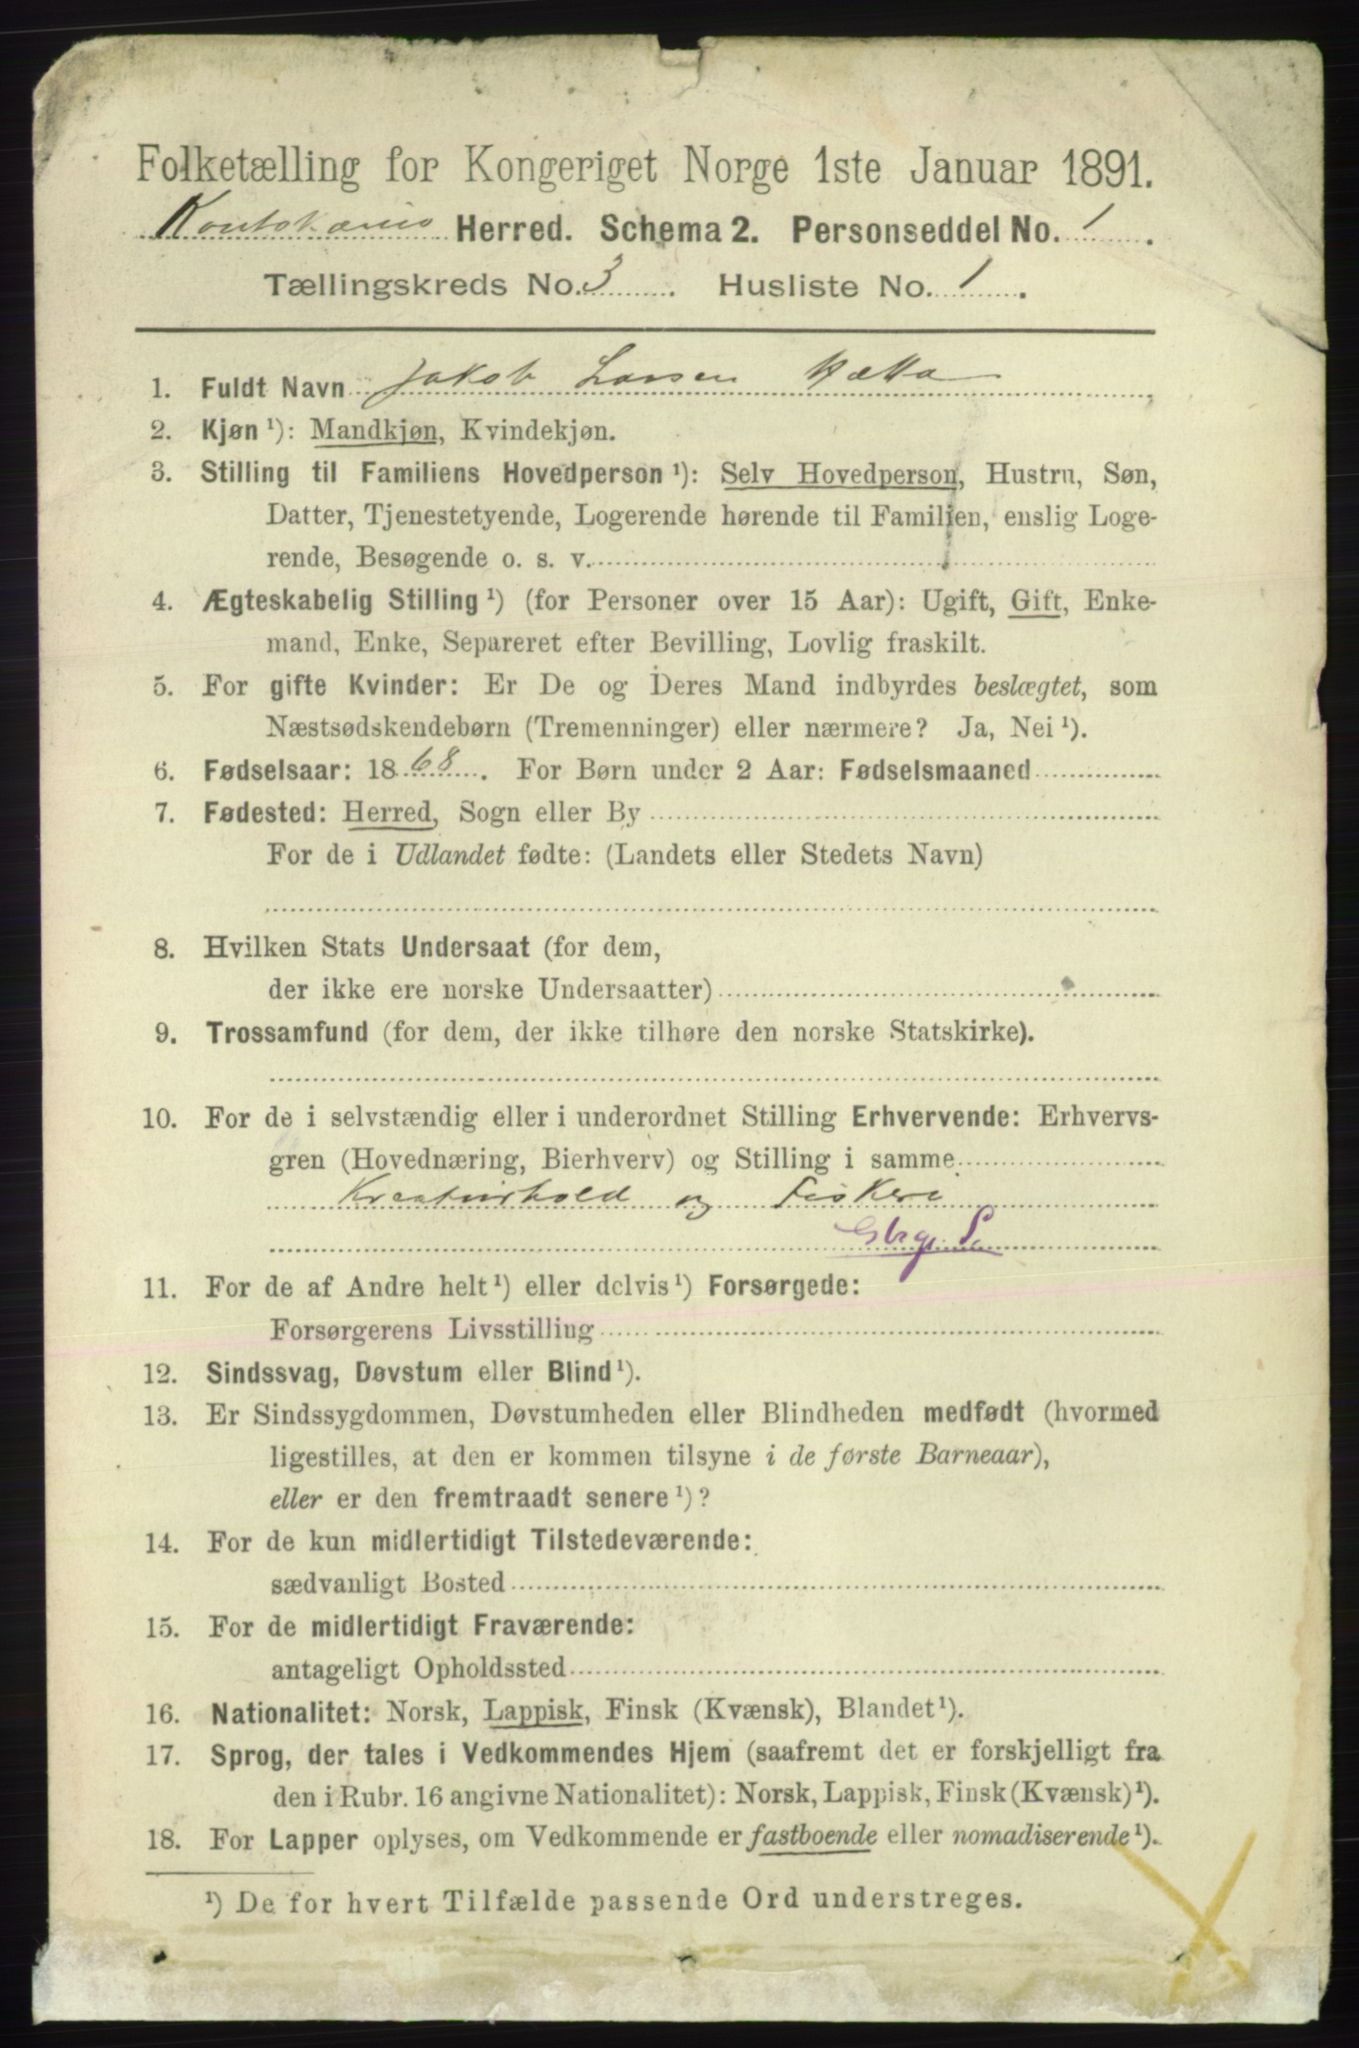 Folketælling for Kongeriget Norge 1ste Januar 1891.
Koutokæino Herred. Schema 2. Personseddel No. 1.
Tællingskreds No. 3. Husliste No. 1.
1. Fuldt Navn Jakob Larsen Hætta
2. Kjøn ¹): Mandkjøn, Kvindekjøn.
3. Stilling til Familiens Hovedperson ¹): Selv Hovedperson, Hustru, Søn,
Datter, Tjenestetyende, Logerende hørende til Familien, enslig Loge-
rende, Besøgende o. s. v.
4. Ægteskabelig Stilling ¹) (for Personer over 15 Aar): Ugift, Gift, Enke-
mand, Enke, Separeret efter Bevilling, Lovlig fraskilt.
5. For gifte Kvinder: Er De og Deres Mand indbyrdes beslægtet, som
Næstsødskendebørn (Tremenninger) eller nærmere? Ja, Nei ¹).
6. Fødselsaar: 1868. For Børn under 2 Aar: Fødselsmaaned
7. Fødested: Herred, Sogn eller By
For de i Udlandet fødte: (Landets eller Stedets Navn)
8. Hvilken Stats Undersaat (for dem,
der ikke ere norske Undersaatter)
9. Trossamfund (for dem, der ikke tilhøre den norske Statskirke).
10. For de i selvstændig eller i underordnet Stilling Erhvervende: Erhvervs-
gren (Hovednæring, Bierhverv) og Stilling i samme
Kreaturhold og Fiskeri
11. For de af Andre helt ¹) eller delvis ¹) Forsørgede:
Forsørgerens Livsstilling
12. Sindssvag, Døvstum eller Blind ¹).
13. Er Sindssygdommen, Døvstumheden eller Blindheden medfødt (hvormed
ligestilles, at den er kommen tilsyne i de første Barneaar),
eller er den fremtraadt senere ¹)?
14. For de kun midlertidigt Tilstedeværende:
sædvanligt Bosted
15. For de midlertidigt Fraværende:
antageligt Opholdssted
16. Nationalitet: Norsk, Lappisk, Finsk (Kvænsk), Blandet ¹).
17. Sprog, der tales i Vedkommendes Hjem (saafremt det er forskjelligt fra
den i Rubr. 16 angivne Nationalitet): Norsk, Lappisk, Finsk (Kvænsk) ¹).
18. For Lapper oplyses, om Vedkommende er fastboende eller nomadiserende ¹).
¹) De for hvert Tilfælde passende Ord understreges.